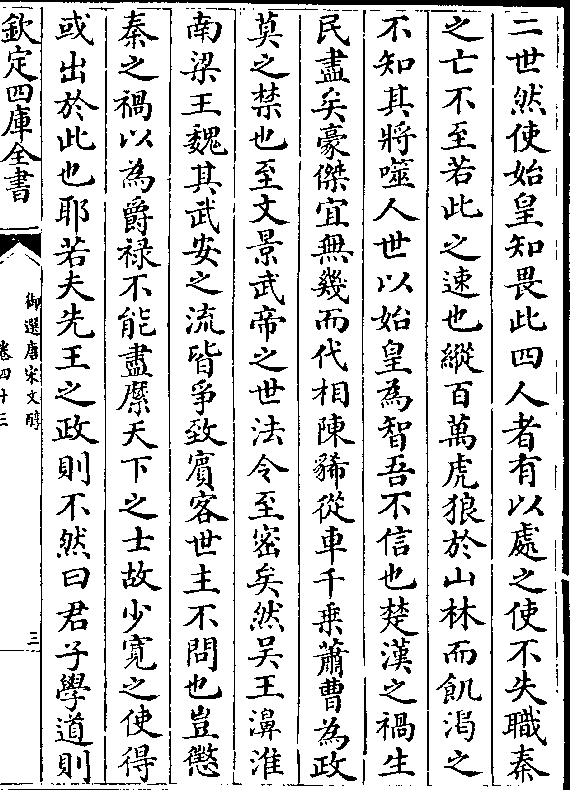 二世然使始皇知畏此四人者有以處之使不失職秦
之亡不至若此之速也縱百萬虎狼於山林而飢渴之
不知其將噬人世以始皇為智吾不信也楚漢之禍生
民盡矣豪傑宜無幾而代相陳豨從車千乗蕭曹為政
莫之禁也至文景武帝之世法令至密矣然吴王濞淮
南梁王魏其武安之流皆爭致賔客世主不問也豈懲
秦之禍以為爵禄不能盡縻天下之士故少寛之使得
或出於此也耶若夫先王之政則不然曰君子學道則
欽定四庫全書
御選唐宋文醇
卷四十三
三